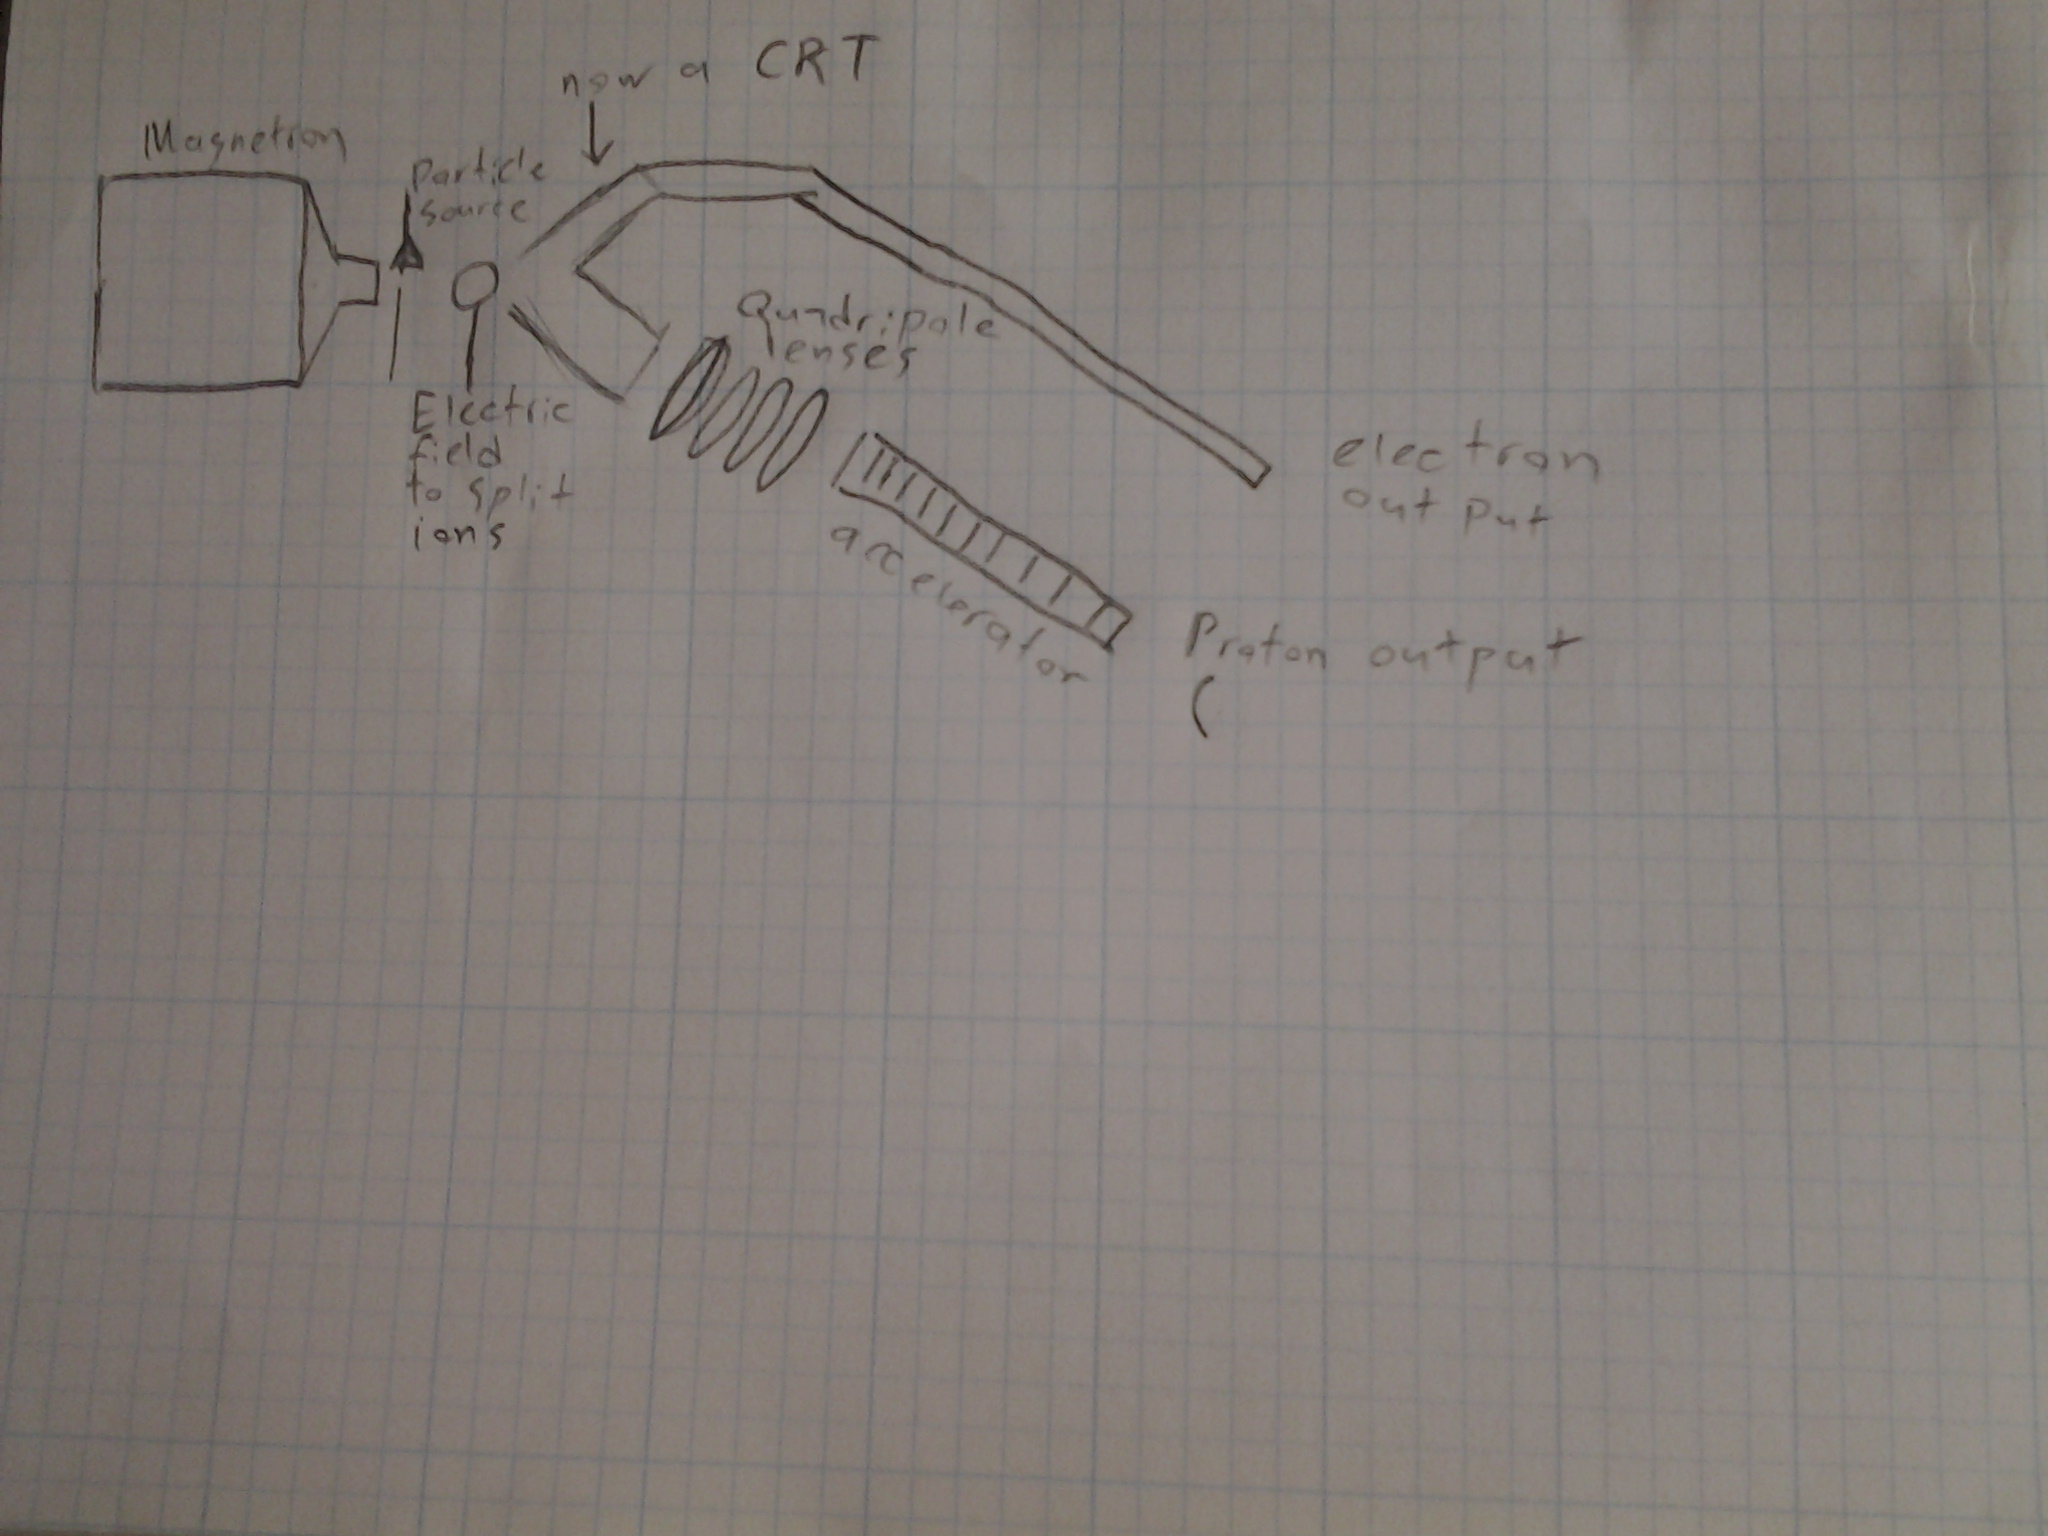 now a CRT
↓
Magnetron
Particle
source
Electric
field
to split
ions
Quadripole
lenses
accelerator
electron
out put
Proton output
(